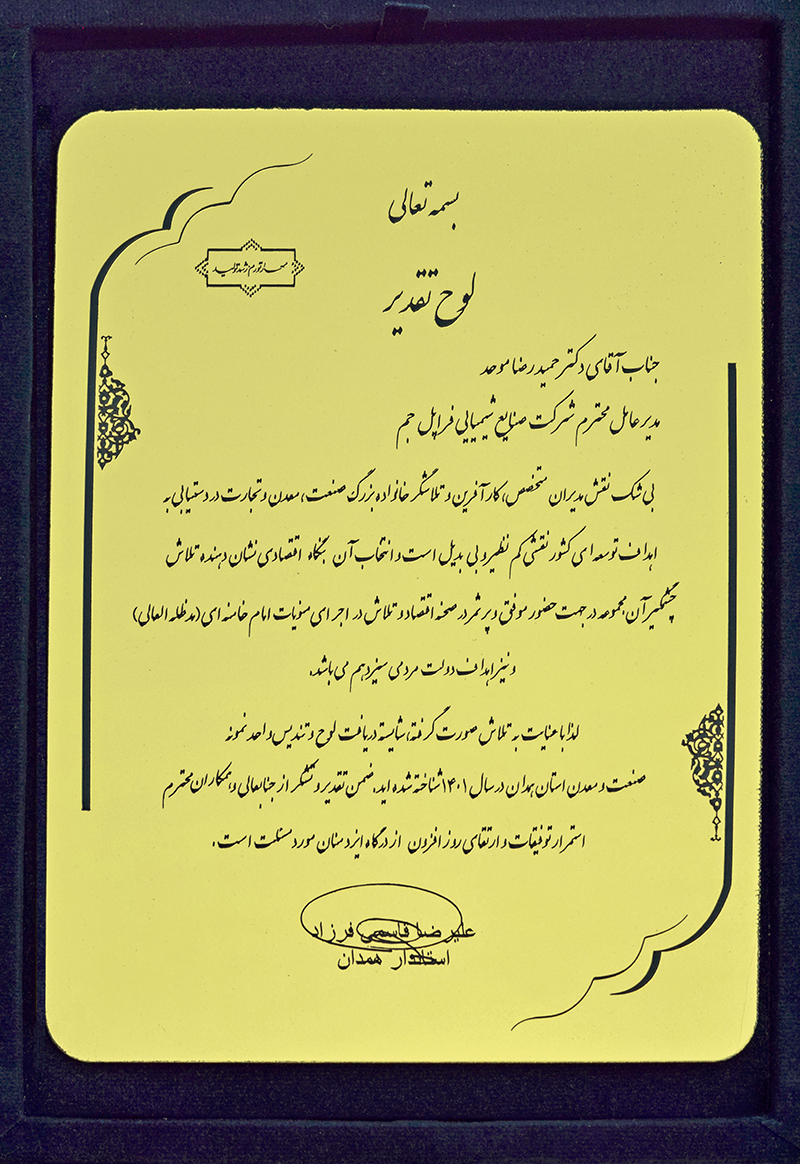 بسمه تعالی
مهار تورم رشد تولید
لوح تقدیر
جناب آقای دکتر حمیدرضا موحد
مدیرعامل محترم شرکت صنایع شیمیایی فراپل جم
بی شک نقش مدیران متخصص، کارآفرین و تلاشگر خانواده بزرگ صنعت، معدن و تجارت در دستیابی به
اهداف توسعه ای کشور نقشی کم نظیر و بی بدیل است و انتخاب آن بنگاه اقتصادی نشان دهنده تلاش
چشمگیر آن مجموعه در جهت حضور موفق و پرثمر در صحنه اقتصاد و تلاش در اجرای منویات امام خامنه ای (مدظله العالی)
و نیز اهداف دولت مردمی سیزدهم می باشد.
لذا با عنایت به تلاش صورت گرفته، شایسته دریافت لوح و تندیس واحد نمونه
صنعت و معدن استان همدان در سال ۱۴۰۱ شناخته شده اید. ضمن تقدیر و تشکر از جنابعالی و همکاران محترم
استمرار توفیقات و ارتقای روز افزون از درگاه ایزد منان مورد مسئلت است.
علیرضا قاسمی فرزاد
استاندار همدان